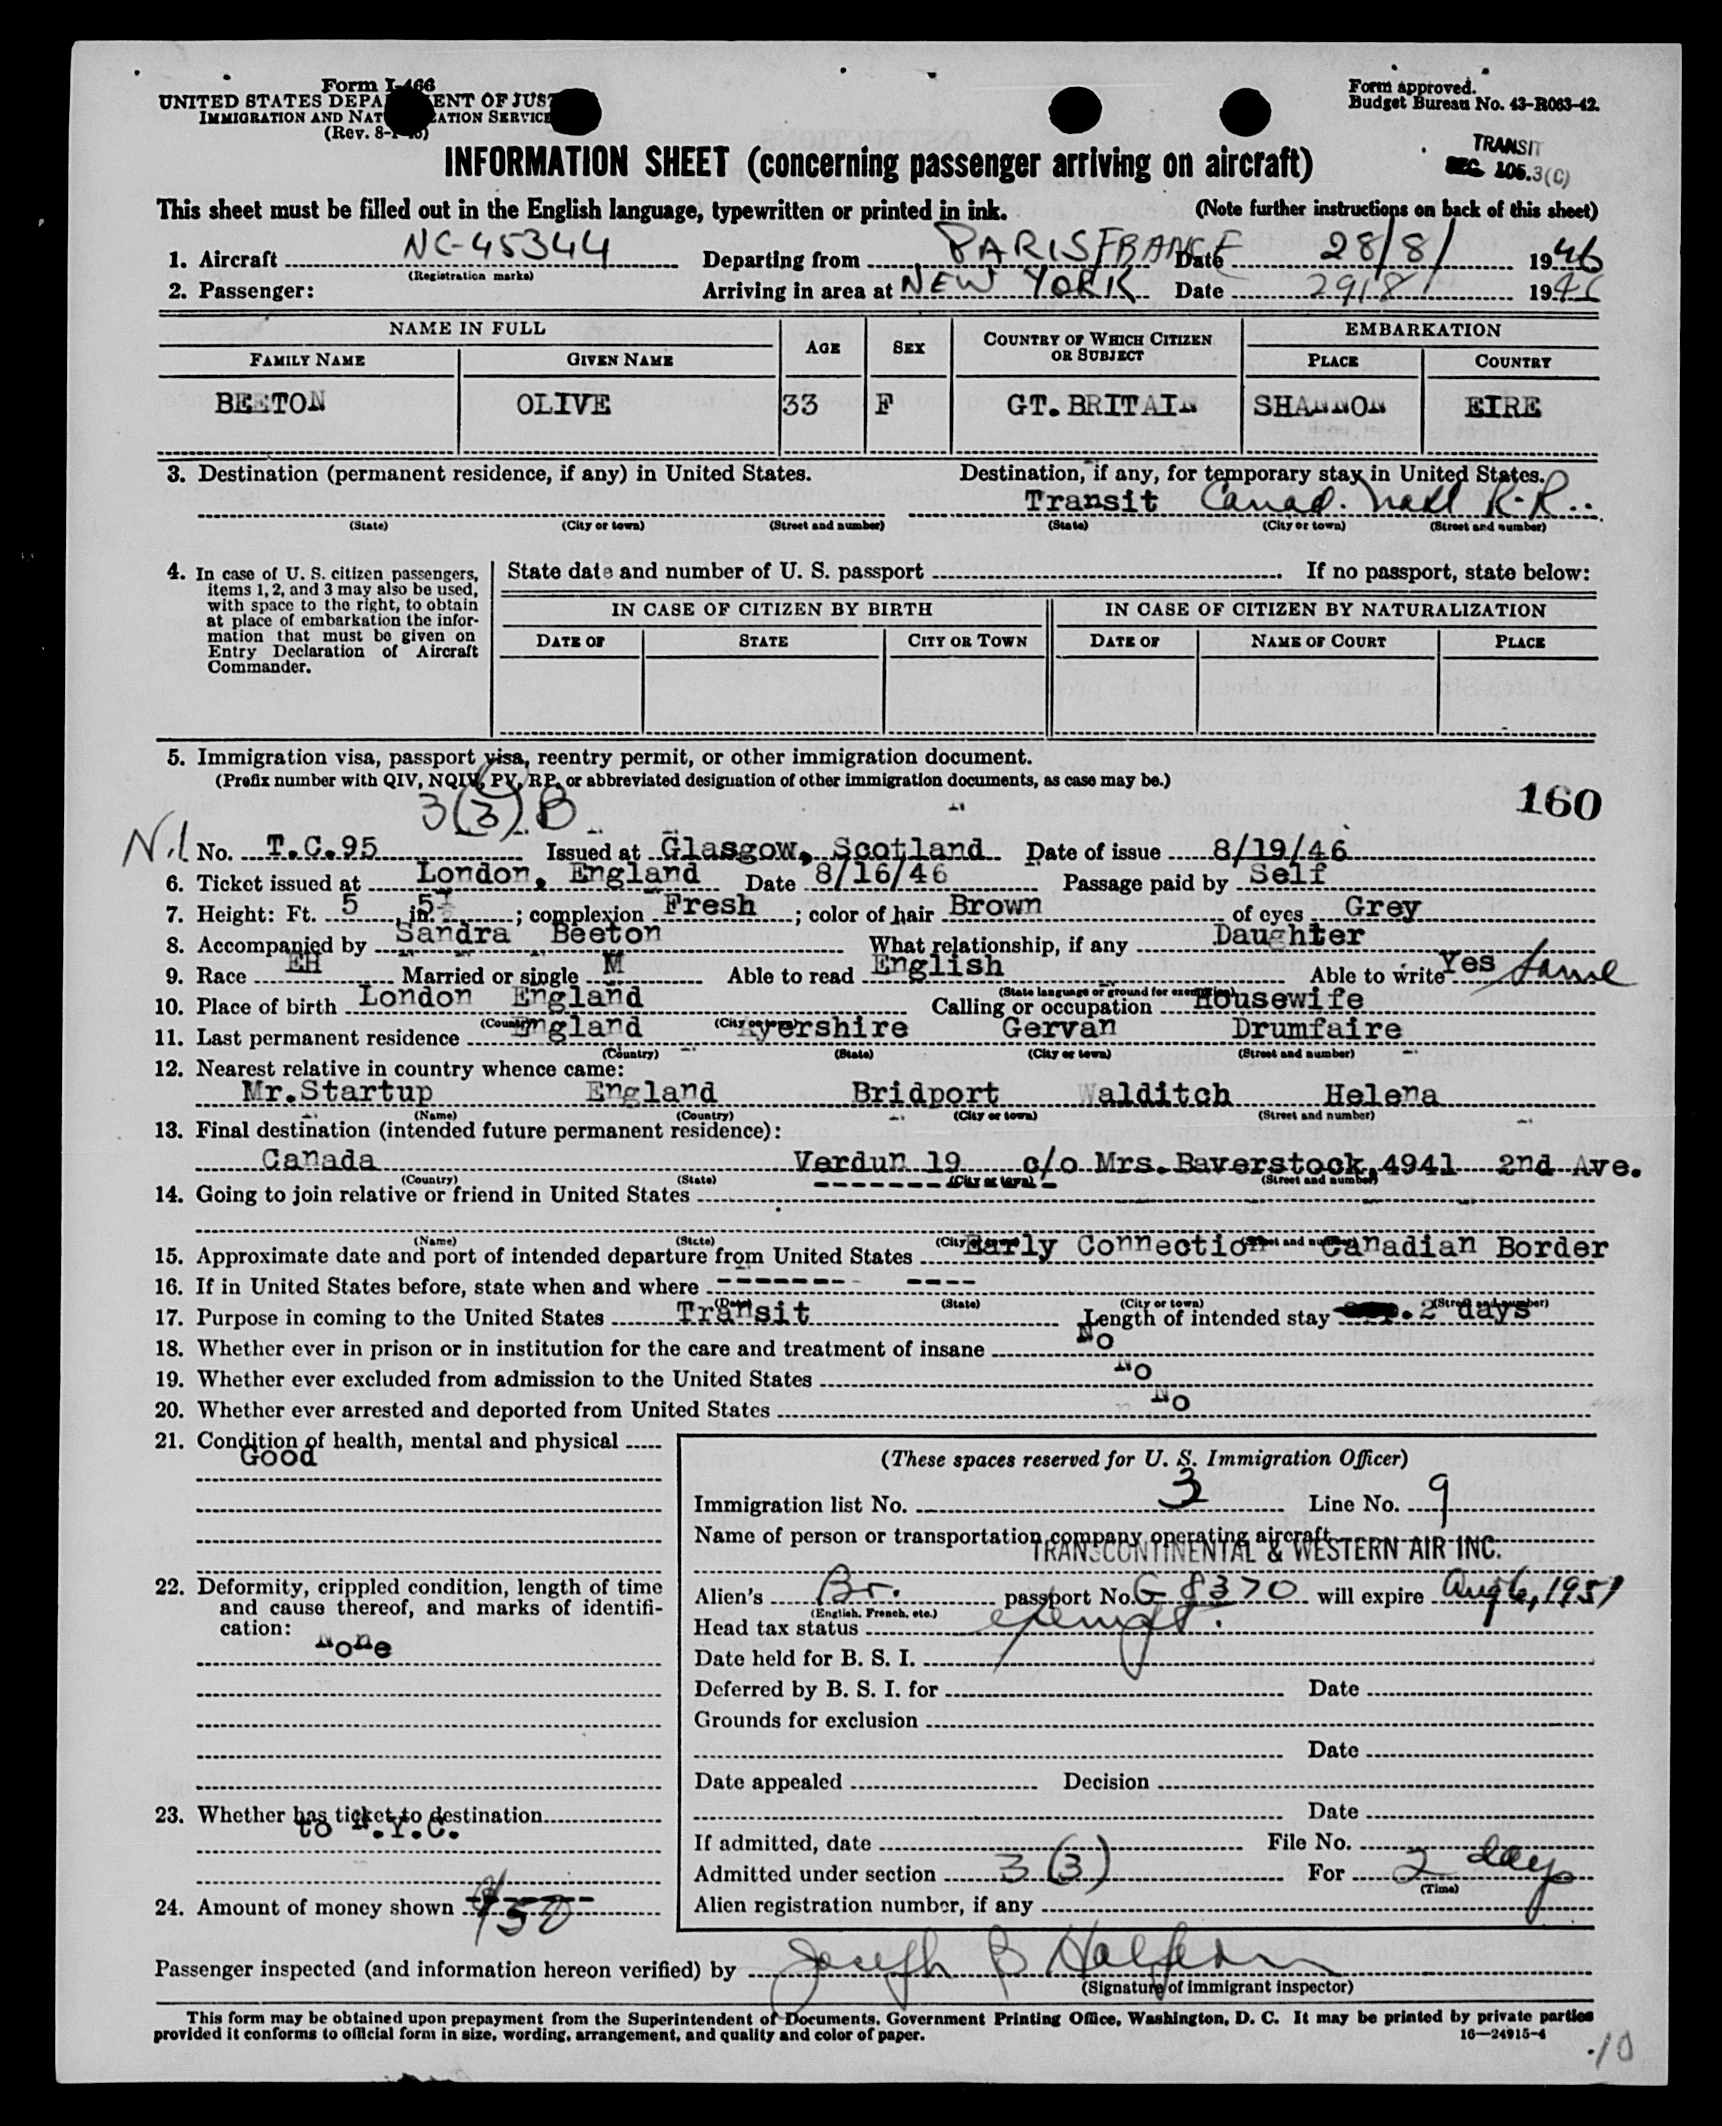 Form I-466
UNITED STATES DEPARTMENT OF JUSTICE
IMMIGRATION AND NATURALIZATION SERVICE
(Rev. 8-1-45)
Form approved.
Budget Bureau No. 43-R063-42.
TRANSIT
SEC. 105.3(C)
INFORMATION SHEET (concerning passenger arriving on aircraft)
This sheet must be filled out in the English language, typewritten or printed in ink. (Note further instructions on back of this sheet)
1. Aircraft NC-45344 Departing from PARIS FRANCE Date 28/8/ 1946
(Registration marks)
2. Passenger: Arriving in area at NEW YORK Date 29/8 1946
NAME IN FULL AGE SEX COUNTRY OF WHICH CITIZEN OR SUBJECT EMBARKATION
FAMILY NAME GIVEN NAME PLACE COUNTRY
BEETON OLIVE 33 F GT.BRITAIN SHANNON EIRE
3. Destination (permanent residence, if any) in United States. Destination, if any, for temporary stay in United States.
Transit Canad. Natl R.R.
(State) (City or town) (Street and number) (State) (City or town) (Street and number)
4. In case of U. S. citizen passengers, items 1, 2, and 3 may also be used, with space to the right, to obtain at place of embarkation the information that must be given on Entry Declaration of Aircraft Commander.
State date and number of U. S. passport If no passport, state below:
IN CASE OF CITIZEN BY BIRTH IN CASE OF CITIZEN BY NATURALIZATION
DATE OF STATE CITY OR TOWN DATE OF NAME OF COURT PLACE
5. Immigration visa, passport visa, reentry permit, or other immigration document.
(Prefix number with QIV, NQIV, PV, RP, or abbreviated designation of other immigration documents, as case may be.)
160
3(3)B
Nil No. T.C.95 Issued at Glasgow, Scotland Date of issue 8/19/46
6. Ticket issued at London, England Date 8/16/46 Passage paid by Self
7. Height: Ft. 5, in. 5½; complexion Fresh; color of hair Brown of eyes Grey
8. Accompanied by Sandra Beeton What relationship, if any Daughter
9. Race EH Married or single M Able to read English Able to write Yes Same
(State language or ground for exemption)
10. Place of birth London England Calling or occupation Housewife
(Country) (City or town)
11. Last permanent residence England Ayershire Gervan Drumfaire
(Country) (State) (City or town) (Street and number)
12. Nearest relative in country whence came:
Mr.Startup England Bridport Walditch Helena
(Name) (Country) (City or town) (Street and number)
13. Final destination (intended future permanent residence):
Canada Verdun 19 c/o Mrs.Baverstock,4941 2nd Ave.
(Country) (State) (City or town) (Street and number)
14. Going to join relative or friend in United States
(Name) (State) (City or town) (Street and number)
15. Approximate date and port of intended departure from United States Early Connection Canadian Border
16. If in United States before, state when and where
(Date) (State) (City or town) (Street and number)
17. Purpose in coming to the United States Transit Length of intended stay 2 days
18. Whether ever in prison or in institution for the care and treatment of insane No
19. Whether ever excluded from admission to the United States No
20. Whether ever arrested and deported from United States No
21. Condition of health, mental and physical
Good
22. Deformity, crippled condition, length of time and cause thereof, and marks of identification:
None
23. Whether has ticket to destination
to N.Y.C.
24. Amount of money shown $50
(These spaces reserved for U. S. Immigration Officer)
Immigration list No. 3 Line No. 9
Name of person or transportation company operating aircraft
TRANSCONTINENTAL & WESTERN AIR INC.
Alien's Br. passport No. G 8370 will expire Aug 6, 1951
(English, French, etc.)
Head tax status exempt.
Date held for B. S. I.
Deferred by B. S. I. for Date
Grounds for exclusion
Date
Date appealed Decision
Date
If admitted, date File No.
Admitted under section 3(3) For 2 days
(Time)
Alien registration number, if any
Passenger inspected (and information hereon verified) by Joseph B Halpern
(Signature of immigrant inspector)
This form may be obtained upon prepayment from the Superintendent of Documents, Government Printing Office, Washington, D. C. It may be printed by private parties
provided it conforms to official form in size, wording, arrangement, and quality and color of paper. 16—24915-4
10